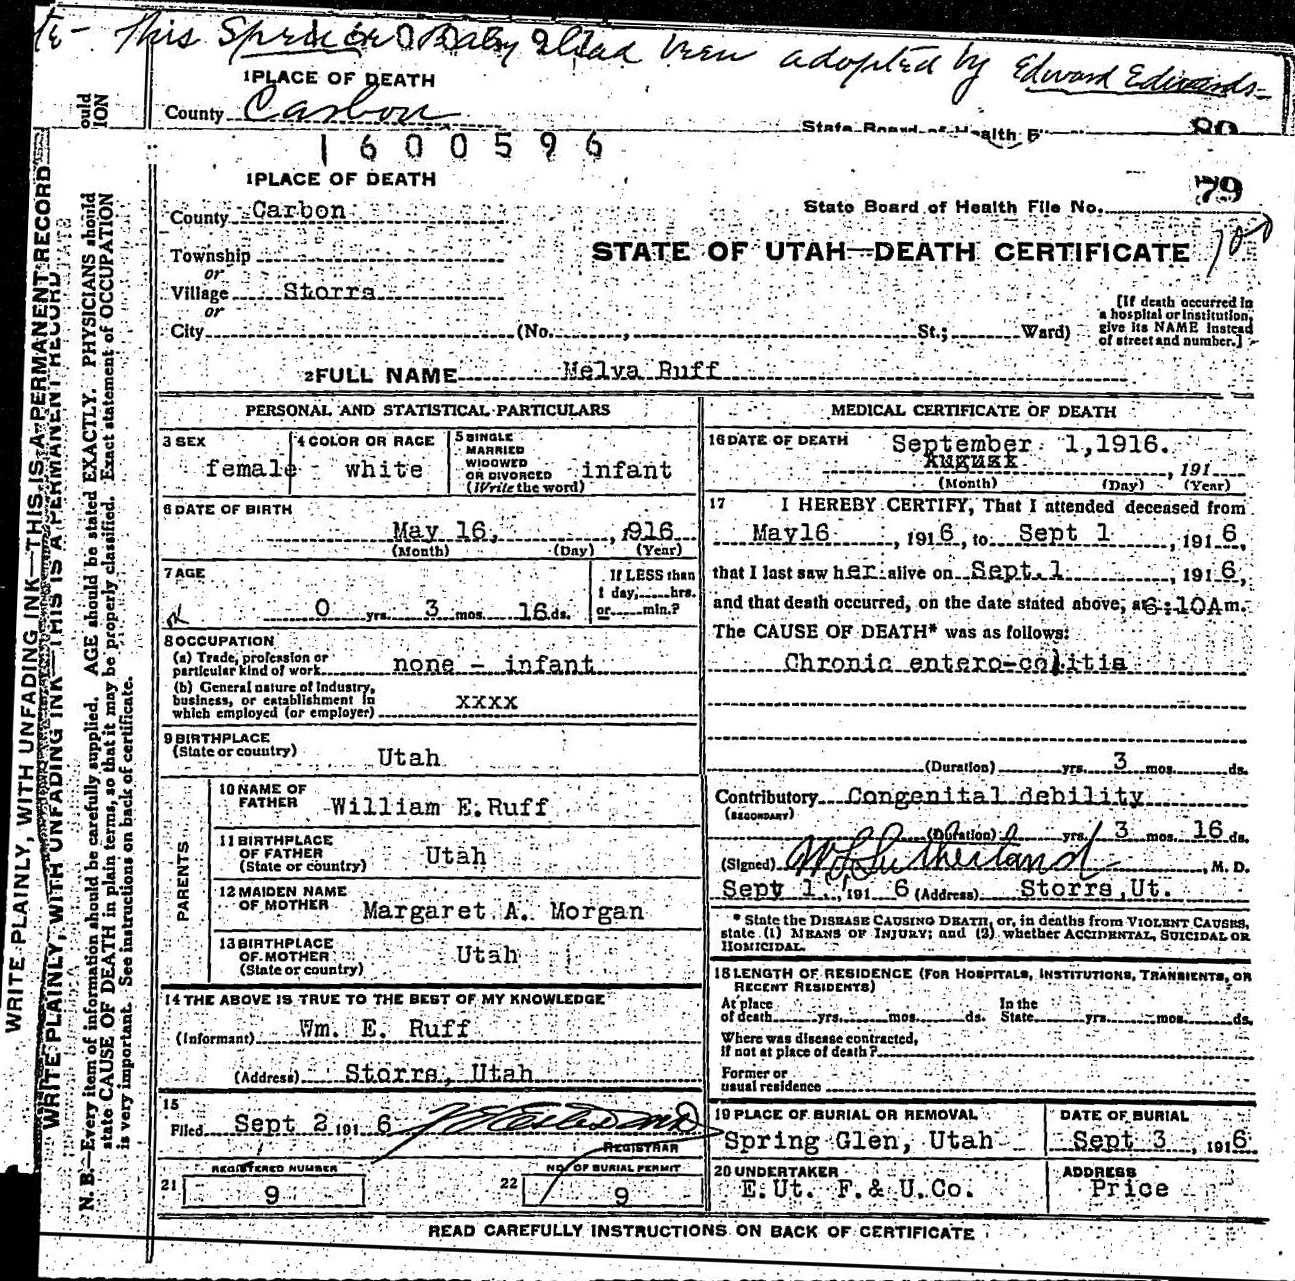 This Spencer Baby had been adopted by Edward Edwards-
1 PLACE OF DEATH
County Carbon
State Board of Health
80
1600596
1 PLACE OF DEATH
79
County Carbon
State Board of Health File No.
Township
STATE OF UTAH—DEATH CERTIFICATE
or
Village Storrs
or
City (No. , St.; Ward)
[If death occurred in
a hospital or institution,
give its NAME instead
of street and number.]
2 FULL NAME Melva Ruff
PERSONAL AND STATISTICAL PARTICULARS
3 SEX
female
4 COLOR OR RACE
white
5 SINGLE
MARRIED
WIDOWED
OR DIVORCED
(Write the word)
infant
6 DATE OF BIRTH
May 16, , 1916
(Month) (Day) (Year)
7 AGE
0 yrs. 3 mos. 16 ds.
If LESS than
1 day, hrs.
or min.?
8 OCCUPATION
(a) Trade, profession or
particular kind of work none - infant
(b) General nature of Industry,
business, or establishment in
which employed (or employer) xxxx
9 BIRTHPLACE
(State or country) Utah
PARENTS
10 NAME OF
FATHER William E. Ruff
11 BIRTHPLACE
OF FATHER
(State or country) Utah
12 MAIDEN NAME
OF MOTHER Margaret A. Morgan
13 BIRTHPLACE
OF MOTHER
(State or country) Utah
14 THE ABOVE IS TRUE TO THE BEST OF MY KNOWLEDGE
(Informant) Wm. E. Ruff
(Address) Storrs, Utah
15
Filed Sept 2 191 6
REGISTRAR
REGISTERED NUMBER
21 9
NO. OF BURIAL PERMIT
22 9
MEDICAL CERTIFICATE OF DEATH
16 DATE OF DEATH September 1,1916.
August , 191
(Month) (Day) (Year)
17 I HEREBY CERTIFY, That I attended deceased from
May16 , 191 6, to Sept 1 , 191 6,
that I last saw her alive on Sept. 1 , 191 6,
and that death occurred, on the date stated above, at 6:10A m.
The CAUSE OF DEATH* was as follows:
Chronic entero-colitis
(Duration) yrs. 3 mos. ds.
Contributory Congenital debility
(SECONDARY)
(Duration) yrs. 3 mos. 16 ds.
(Signed) W L Sutherland , M. D.
Sept 1., 191 6 (Address) Storrs,Ut.
* State the DISEASE CAUSING DEATH, or, in deaths from VIOLENT CAUSES,
state (1) MEANS OF INJURY; and (2) whether ACCIDENTAL, SUICIDAL OR
HOMICIDAL.
18 LENGTH OF RESIDENCE (FOR HOSPITALS, INSTITUTIONS, TRANSIENTS, OR
RECENT RESIDENTS)
At place
of death yrs. mos. ds.
In the
State yrs. mos. ds.
Where was disease contracted,
if not at place of death?
Former or
usual residence
19 PLACE OF BURIAL OR REMOVAL
Spring Glen, Utah
DATE OF BURIAL
Sept 3 , 191 6
20 UNDERTAKER
E. Ut. F. & U. Co.
ADDRESS
Price
READ CAREFULLY INSTRUCTIONS ON BACK OF CERTIFICATE
WRITE PLAINLY, WITH UNFADING INK—THIS IS A PERMANENT RECORD
WRITE PLAINLY, WITH UNFADING INK—THIS IS A PERMANENT RECORD
N. B.—Every item of information should be carefully supplied. AGE should be stated EXACTLY. PHYSICIANS should
state CAUSE OF DEATH in plain terms, so that it may be properly classified. Exact statement of OCCUPATION
is very important. See instructions on back of certificate.